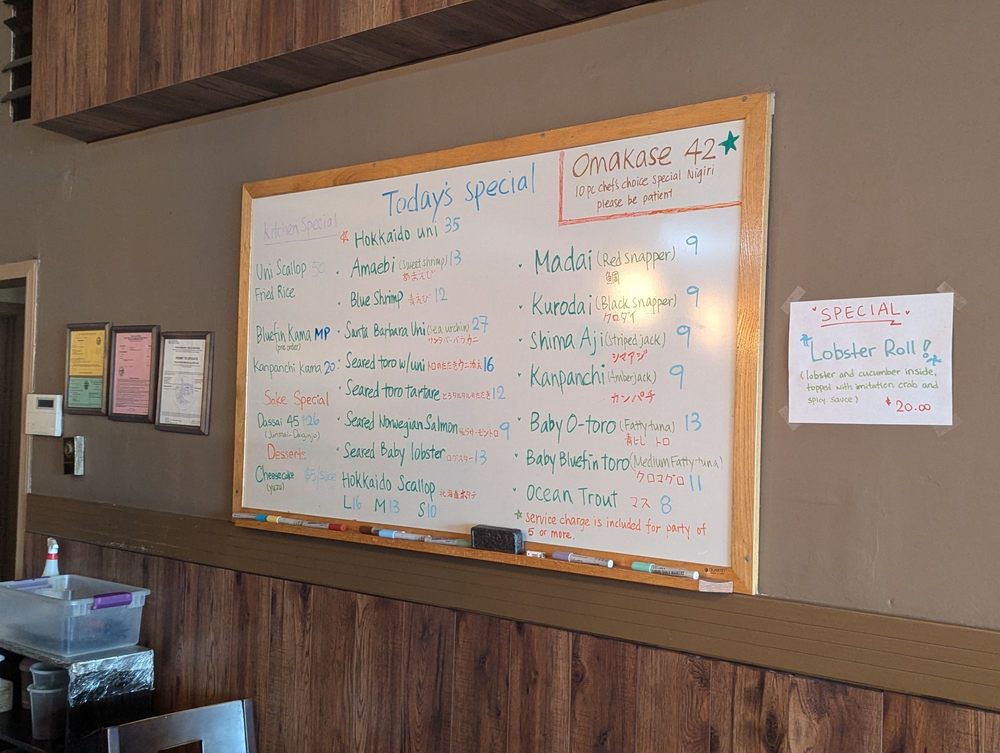 Today's special
Omakase 42
10 pc chef's choice Special Nigiri
please be patient
Kitchen Special
Uni Scallop 30
Fried Rice
Bluefin Kama MP
(pre order)
Kanpanchi kama 20
Sake Special
Dassai 45 $26
(Junmai-Daiginjo)
Desserts
Cheesecake $5/slice
(yuzu)
Hokkaido uni 35
Amaebi (sweet shrimp) 13
あまえび
Blue Shrimp 青えび 12
Santa Barbara Uni (sea urchin) 27
サンタバーバラ ウニ
Seared toro w/uni 16
Seared toro tartare 12
Seared Norwegian Salmon 9
Seared Baby lobster ロブスター 13
Hokkaido Scallop 北海道ホタテ
L16 M13 S10
Madai (Red snapper) 9
鯛
Kurodai (Black snapper) 9
クロダイ
Shima Aji (Striped jack) 9
シマアジ
Kanpanchi (Amberjack) 9
カンパチ
Baby O-toro (Fatty tuna) 13
トロ
Baby Bluefin toro (Medium Fatty tuna)
クロマグロ 11
Ocean Trout マス 8
service charge is included for party of
5 or more.
SPECIAL
Lobster Roll!
(lobster and cucumber inside,
topped with imitation crab and
spicy sauce)
$20.00